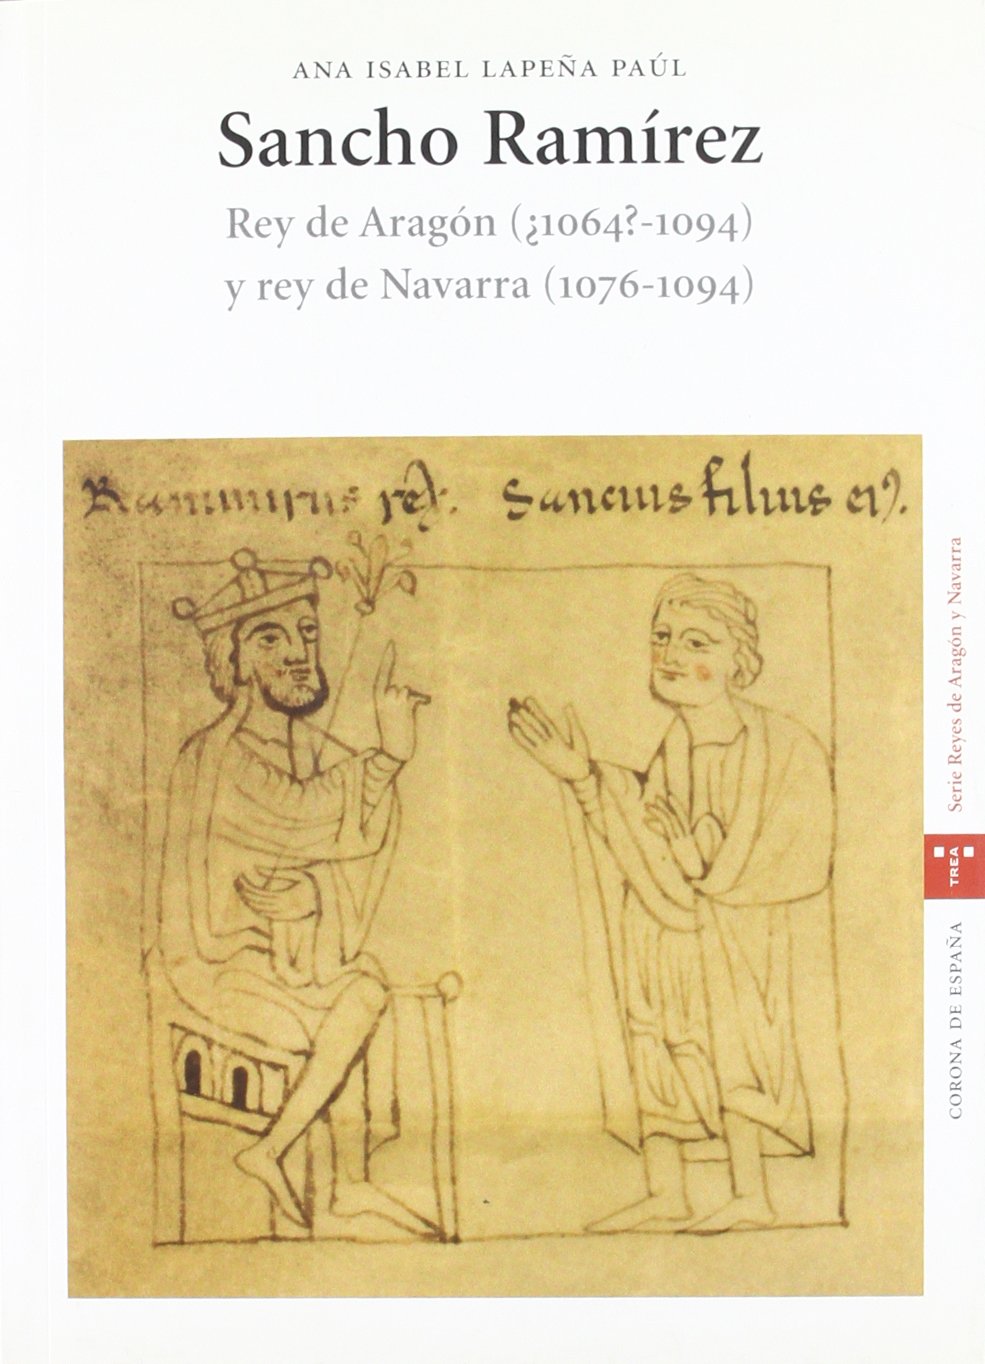 ANA ISABEL LAPEÑA PAÚL
Sancho Ramírez
Rey de Aragón (¿1064?-1094)
y rey de Navarra (1076-1094)
Ranimirus rex. Sancius filius ei⁹.
Serie Reyes de Aragón y Navarra
TREA
CORONA DE ESPAÑA